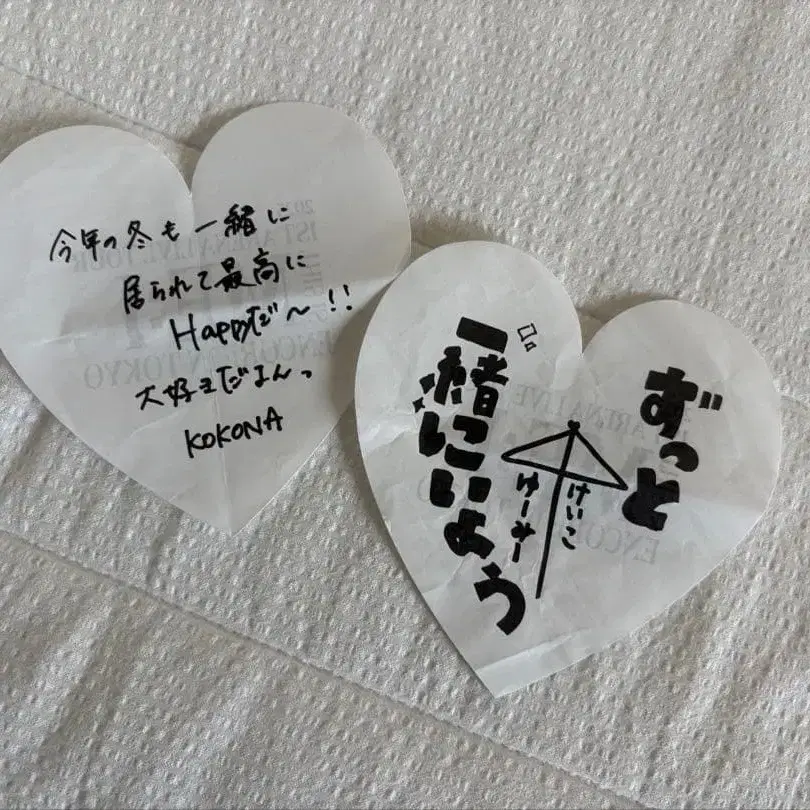 今年の冬も一緒に
居られて最高に
Happyだ〜!!
大好きだよんっ
KOKONA
ずっと
一緒にいよう
けいこ
ゆーみー
ARENA LIVE
ENCORE IN TOKYO